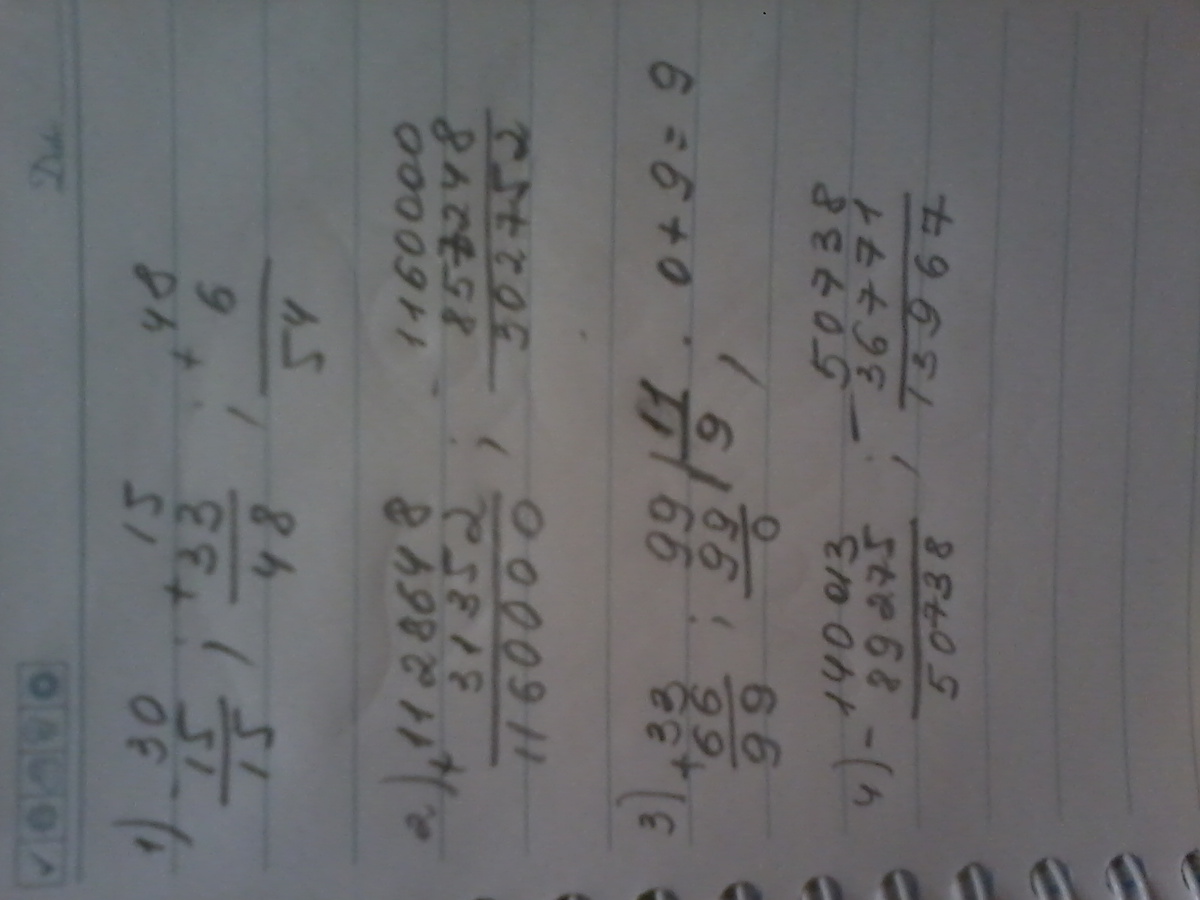 Du
1) - 30 15 + 48
15 ; +33 ; 6
15 48 54
2) +1128648 - 1160000
31352 ; 857248
1160000 302752
3) +33 99 11 . 0+9=9
66 ; 99 9 ,
99 0
4) - 140013 - 50738
89275 ; 36771
50738 13967